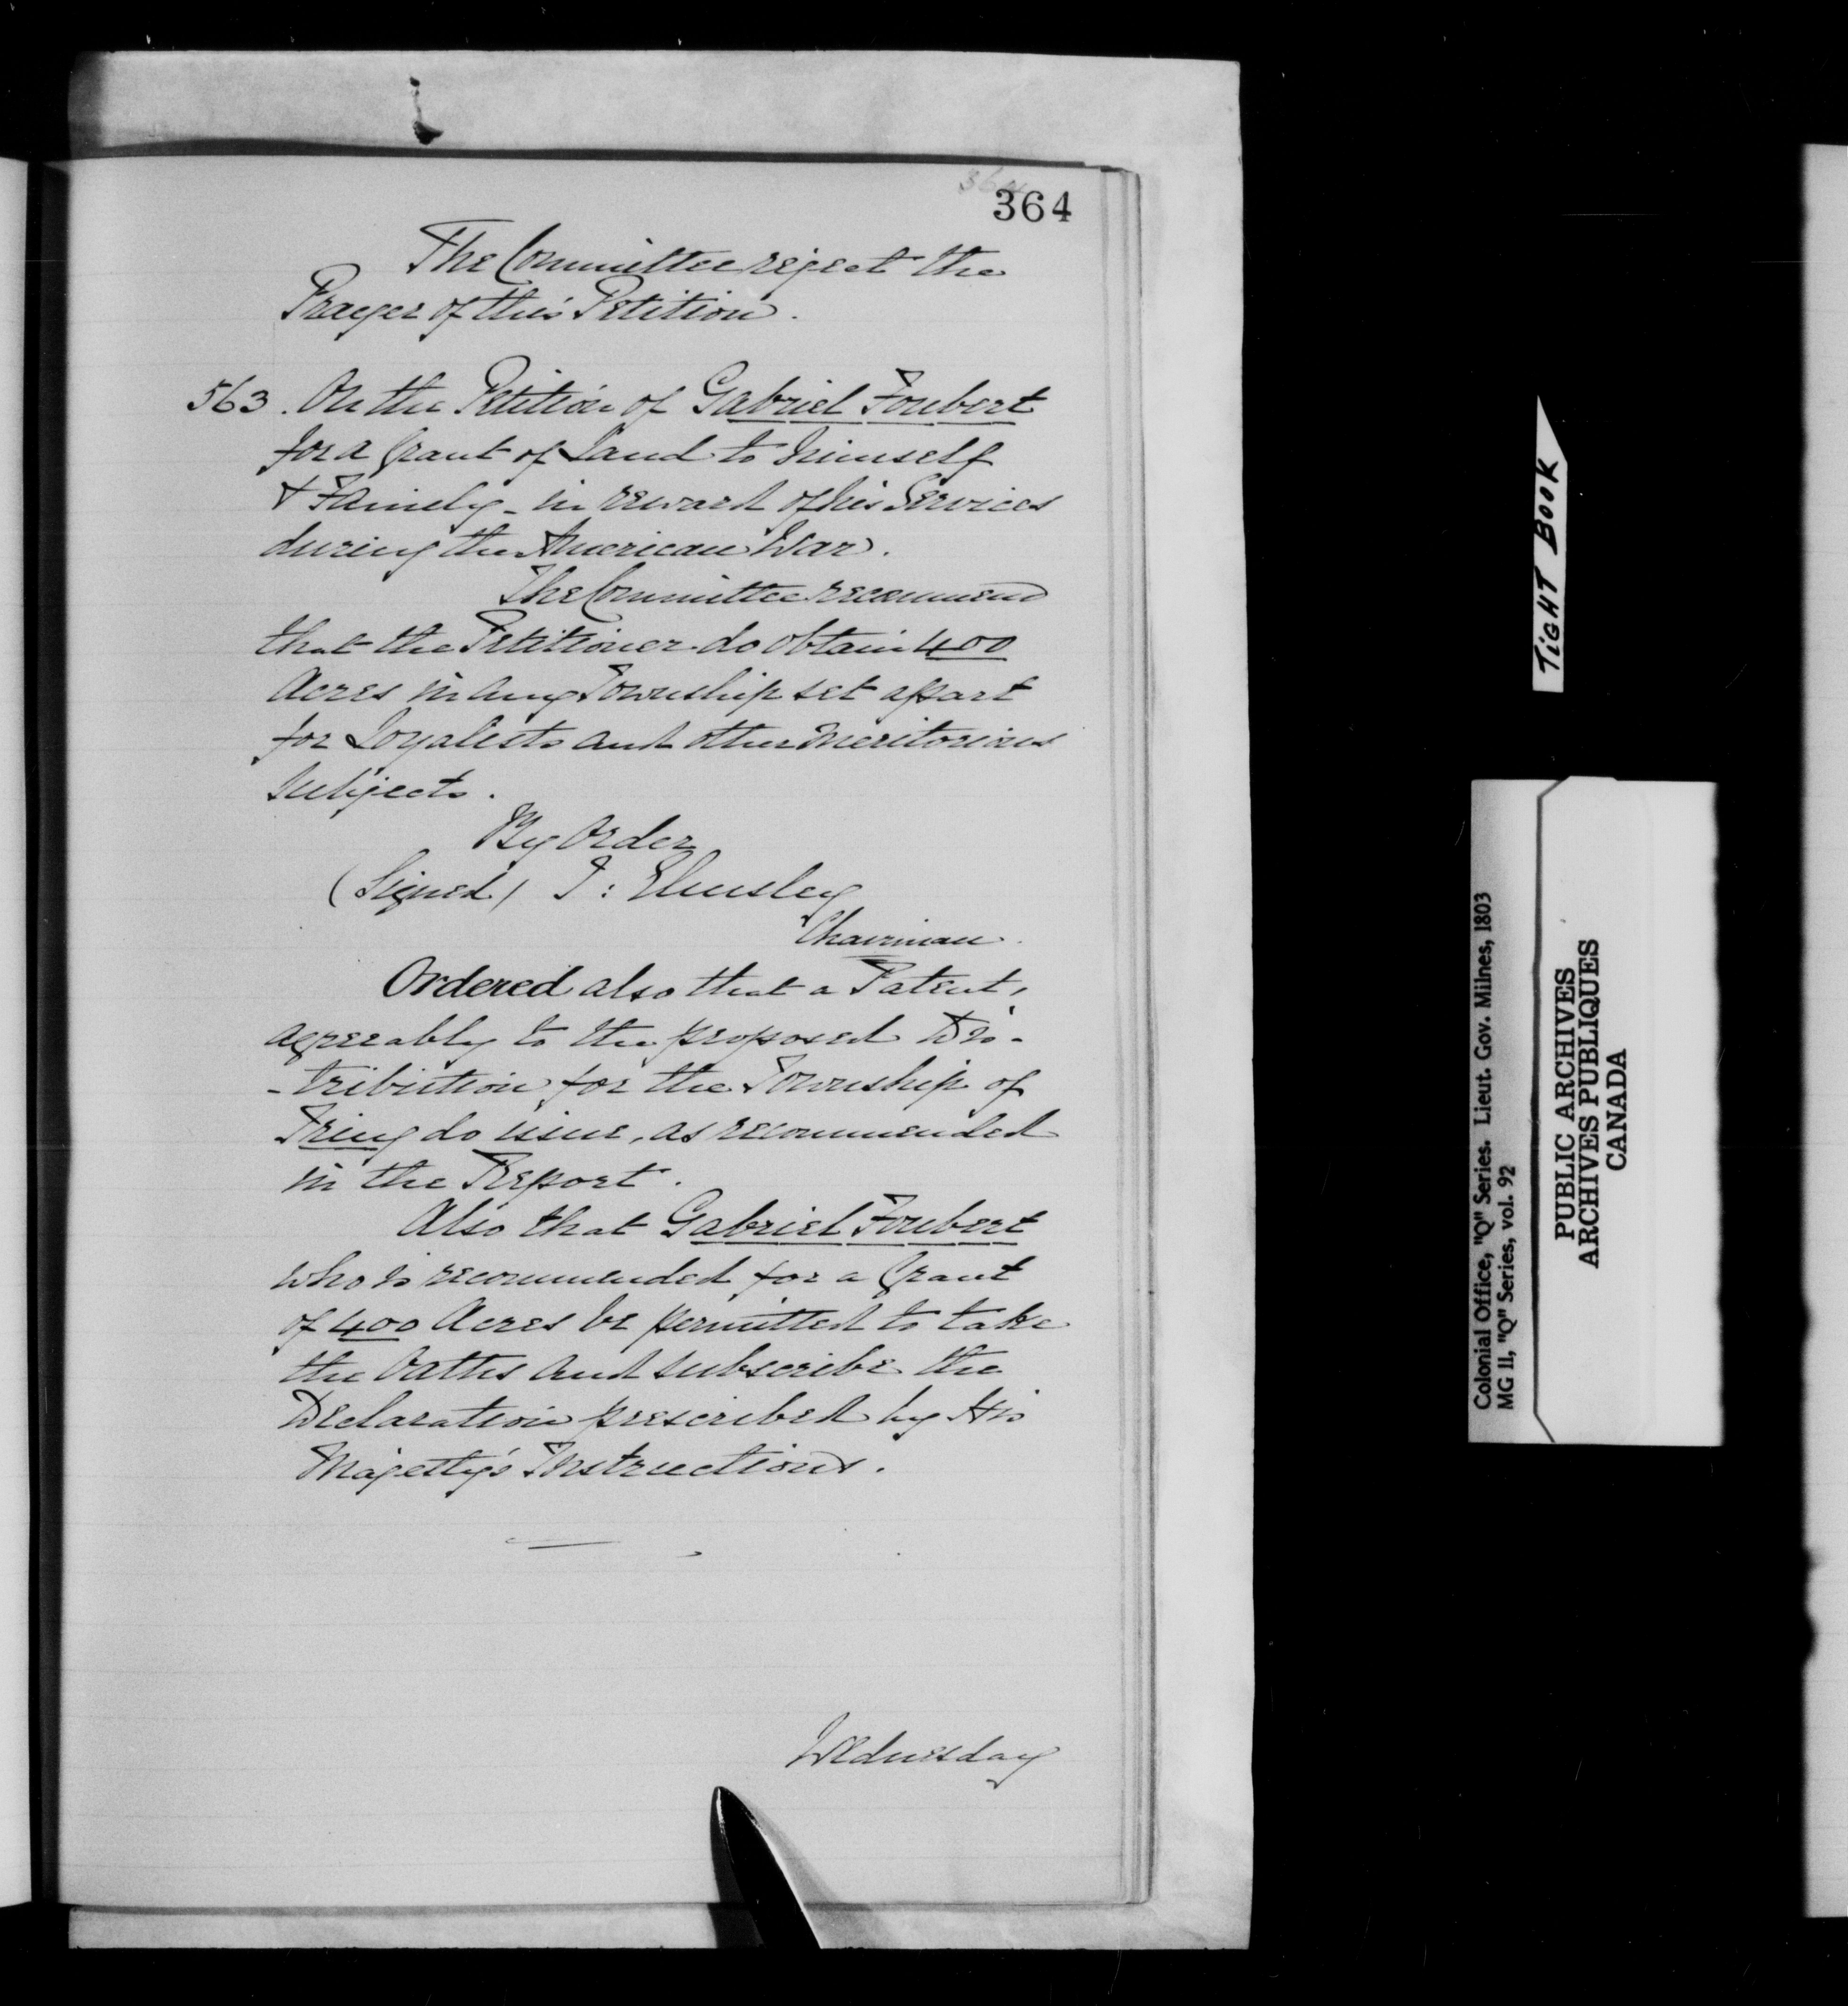 364
The Committee reject the
Prayer of this Petition.
563. On the Petition of Gabriel Foubert
for a Grant of Land to himself
& Family - in reward of his Services
during the American War.
The Committee recommend
that the Petitioner do obtain 400
Acres in any Township set apart
for Loyalists and other meritorious
subjects.
By Order
(Signed) J: Elmsley
Chairman
Ordered also that a Patent,
agreeably to the proposed Dis-
-tribution for the Township of
Tring do issue, as recommended
in the Report.
Also that Gabriel Foubert
who is recommended for a Grant
of 400 Acres be permitted to take
the Oaths and subscribe the
Declaration prescribed by His
Majesty's Instructions.
Wednesday
TIGHT BOOK
Colonial Office, "Q" Series. Lieut. Gov. Milnes, 1803
MG 11, "Q" Series, vol. 92
PUBLIC ARCHIVES
ARCHIVES PUBLIQUES
CANADA